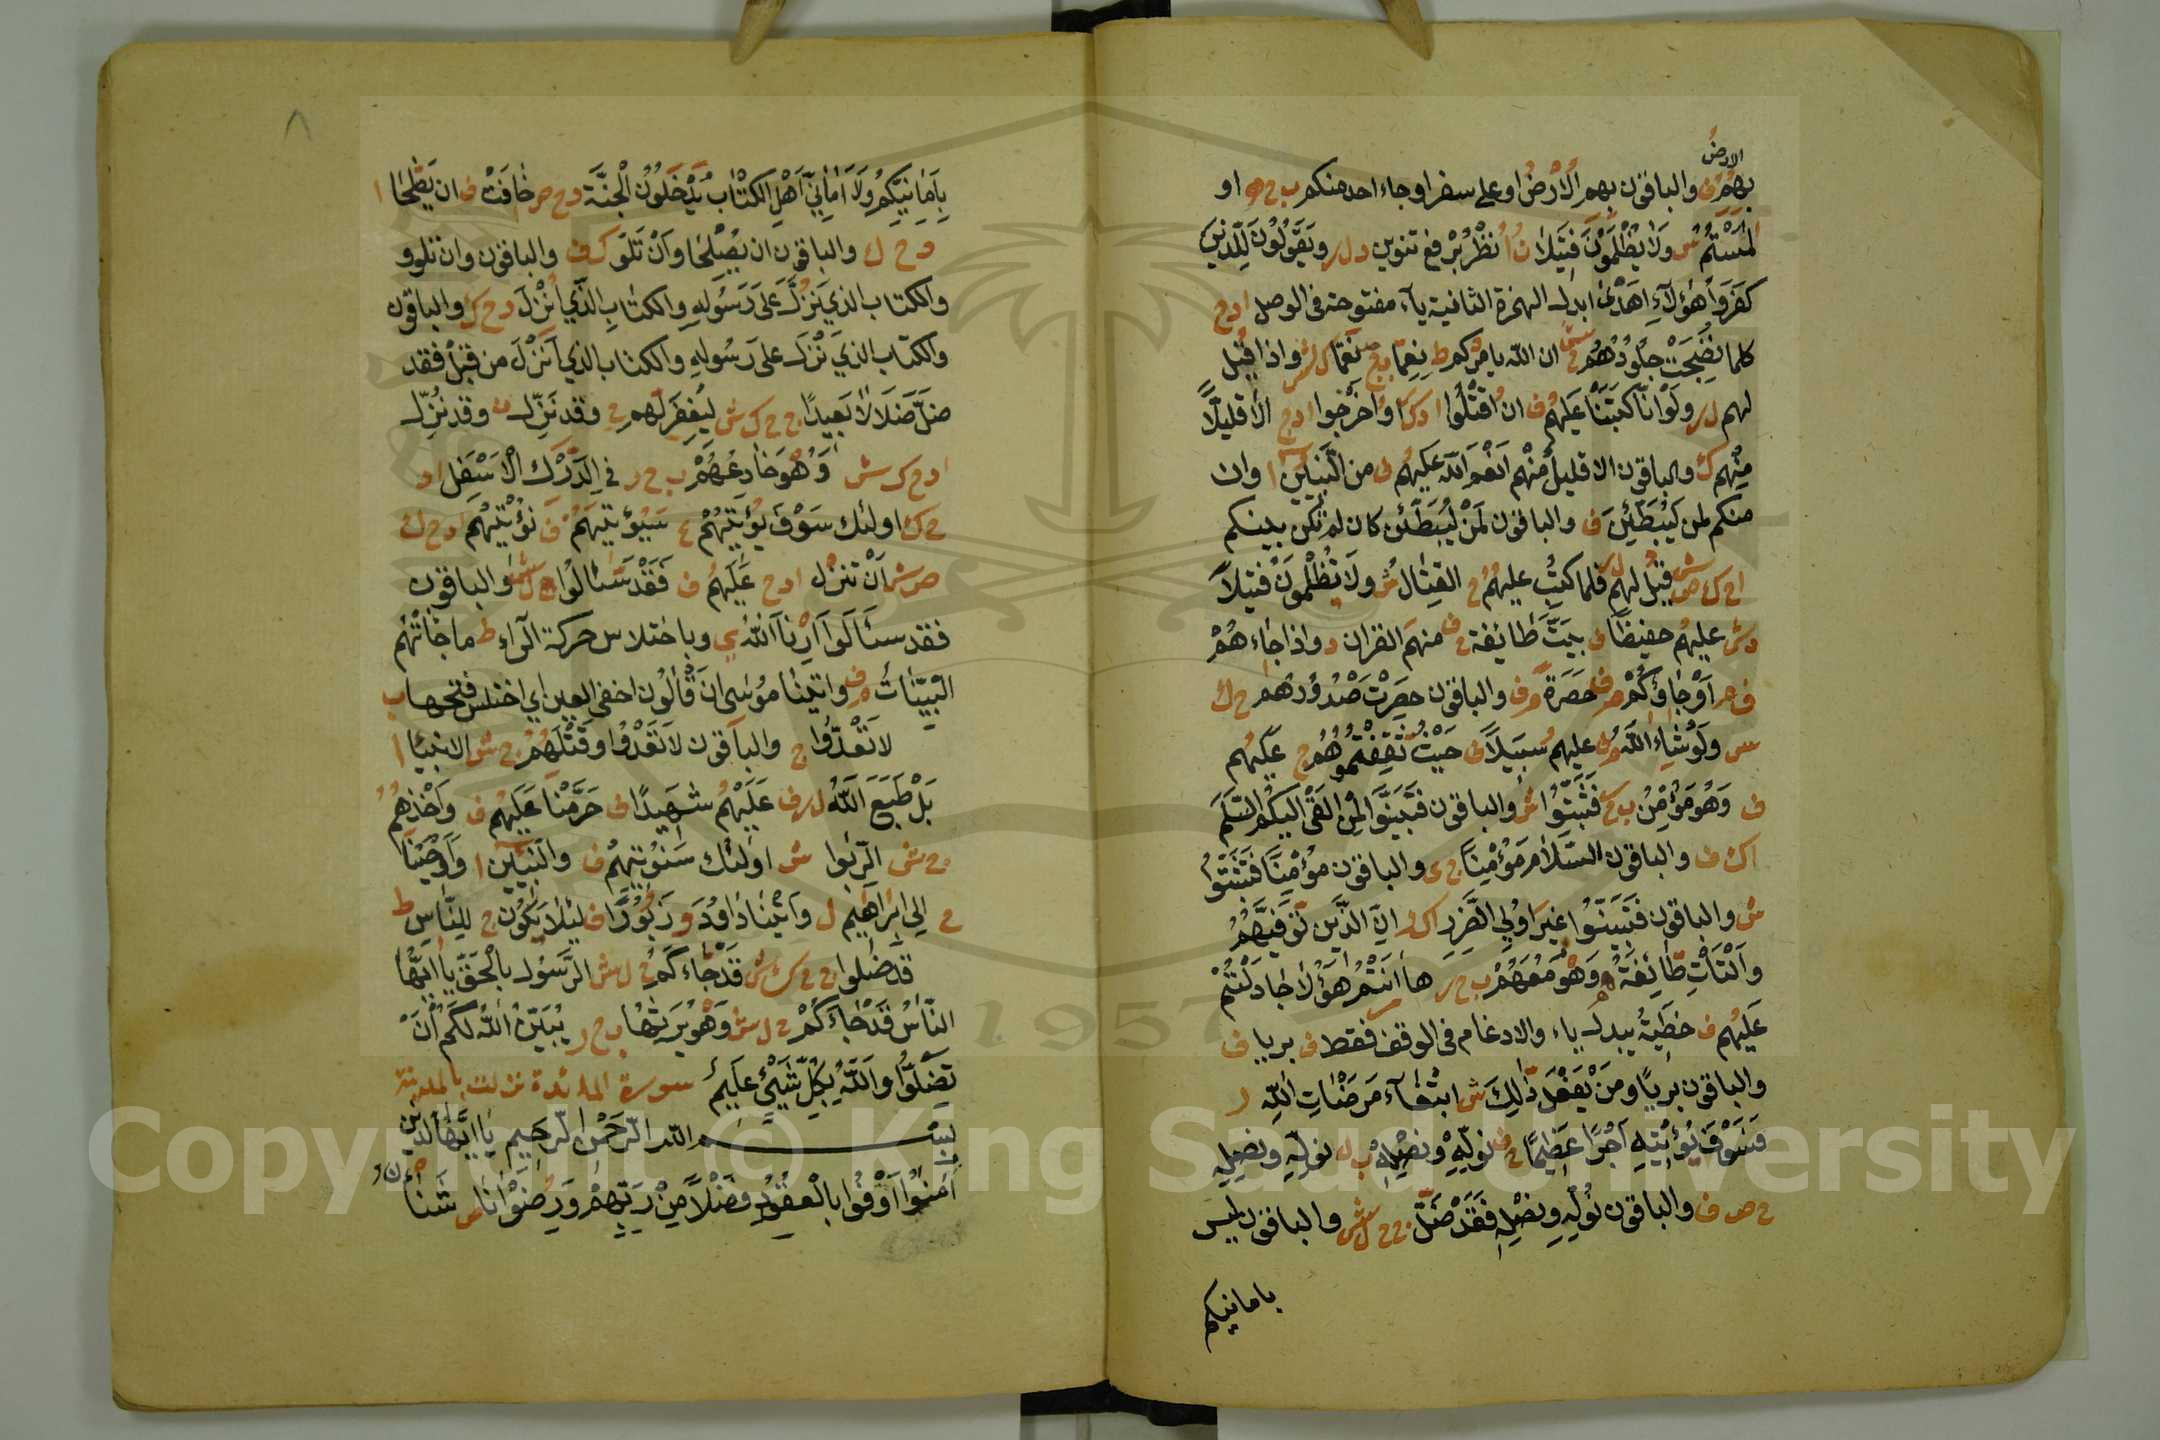 الارضُ
بِهِمُ ف والباقون بهم الْاَرْضُ او على سفر او جاء احد منكم ب ح ه او
لٰمَسْتُمُ ش ولا يُظْلَمُوْنَ فَتِيْلاً ن اُنْظُرْ برفع تنوين د ل ر وَيَقُوْلُوْنَ لِلَّذِيْنَ
كَفَرُوا هٰؤُلَاءِ اَهْدٰى ابدل الهمزة الثانية ياء مفتوحة فى الوصل ا د ح
كلما نَضِجَتْ جُلُوْدُهُمْ ح ش ان الله يامركم ط نِعِمَّا ب ح ص نَعِمَّا ك ش واذا قِيْلَ
لهم ل ر ولَوْ اَنَّا كَتَبْنَا عَلَيْهِمُ ف انُ اقْتُلُوا ا د ك ر اوُ اخْرُجوا ا د ح الا قليلاً
مِنْهم ك والباقون الا قليلٌ مِنْهم انعَمَ اللّه عَلَيْهُم ف من النَّبِيئِيْنَ ا وان
منكم لمن لَيُبَطِّيَنَّ ف والباقون لَمَنْ لَيُبَطِّئَن كان لم تكن بينكم
ا ح ك ص ش قِيْلَ لهم ل ر فلما كُتِبَ عليهُمُ ح القِتَالُ ش ولا تُظْلَمُوْنَ فتيلاً
د ش عليهُم حفيظًا ف بيَتَّ طَائفة ح ف منهم القران د واذا جَاءهُمْ
ف م اَوْ جَاؤُكُمْ م ف حَصِرَةً م ف والباقون حصِرَتْ صُدُوْرُهُمْ ح ك
ش ولَوْ شَاءَ اللّهُ م ف عليهم سَبِيلاً ف حَيْثُ ثَّقِفْتُمُوهُمْ ح عليهُم
ف وَهْوَ مؤْمِنٌ ب ح ر فَتَثَبَّتُوا ش والباقون فَتَبَيَّنُوا لمن القَى اليكُم السَّلَمَ
ا ك ف والباقون السَّلَام مُوْمِنًا ح ى والباقون مؤمِنًا فَتَثَبَّتُوا
ش والباقون فتَبَيَّنُوا غيرَ اُولِي الضَّرَرِ ا ك ر ان الّذين تّوَفَّيهُمُ
ه وَلْتَأْتِ طَّائِفَةٌ ح وَهْوَ مَعَهُمْ ب ح ر ها اَنْتُم هؤلا جَادَلْتُمْ
عليهُم ف خطيةً يبدل ياء والادغام فى الوقف فقط ف بريا ف
والباقون بريًا ومَنْ يَفْعَل ذّٰلِكَ س ابتغاء مَرضَاتِ اللّه ر
فسَوْفَ يُؤْتِيْهِ اَجْرًا عَظِيْمًا ح ف نُوَلِّهْ ونُصْلِهْ ب ل نوَلِّهِ ونصْلِهِ
ح ص ف والباقون نُوَلِّهِ ونُصْلِهِ فَقَدْ ضَلَّ ح ح ل ش والباقون ليس
بامانيكم
بِاَمَانِيِّكُمْ وَلَا اَمَانِيِّ اَهْلِ الكِتَابِ يُدْخَلُوْنَ الْجَنَّةَ د ح ص خَافَتْ ف ان يَصَّلَحَا ا
د ح ك والباقون ان يُصْلِحَا وَاَنْ تَلُو ك ف والباقون وان تلوو
والكتاب الذي نُزِّلَ عَلى رَسُوْلِهِ والكتَابِ الَّذي اُنْزِلَ د ح ك والباقون
والكتاب الذي نَزَّلَ على رَسُولِهِ والكتاب الذي اَنْزَلَ من قَبْلُ فقد
ضلَّ ضَلَالاً بَعِيدًا ح ح ك ش ليغفِر لّهم ح وقد نَزَّل ن وقد نُزِّل
ا د ح ك ش وَهْوَ خَادِعُهُمْ ب ح ر فى الدَّرَكِ الْاَسْفَلِ ا د
ح ك اولئك سَوْفَ يُؤْتِيْهُمْ ع سَيُؤْتِيْهُمُ ف نُؤْتِيْهُم ا د ح ك
ص ش اَنْ تنزل ا د ح عَلَيْهُمُ ف فَقَدْ سَّئَالُوا ح ل ش والباقون
فقد سئَالُوا اَرْنَا اللّهَ ى وباختلاس حركة الرّاء ط ما جَاءَتْهُم
البَيِّنَاتُ م ف واتينَا مُوْسٰى ان قَالُون اخفى العين اي اختلس فتحها ب
لا تَعَدُّوا ج والباقون لاَ تَعْدُوا وقَتْلَهُمْ ح ش الانبئا ا
بَلْ طَبَعَ اللّهُ ل ر ف عَلَيْهُم شَهِيدًا ف حَرَّمْنَا عَلَيْهُم ف وَاَخْذِهُمُ
ح ش الرِّبٰوا ش اولئك سَيُؤْتِيْهُم ف والنَّبِيئِيْنَ ا وَاَوْحَيْنَا
ح اِلى اِبْرَاهَيم ل وَاتَيْنَا دَاوُدَ و زُبُوْرًا ف لِئَلَّا يَكُوْن ج لِلنَّاسِ ط
قد ضَلوا ح ح ك ش قَدْ جَاءَكُمُ ح ل ش الرَّسُولُ بالْحَقِّ يا ايّهَا
النّاسُ قَدْ جَاءَكُمْ ح ل ش وَهْوَ يَرِثُهَا ب ح ر يُبَيِّنُ اللّهُ لكُم اَنْ
تَضِلُّوا وَاللّهُ بِكُلِّ شَيْئٍ عَلِيْمٌ سورة المائدة نزلت بالمدينة
بِسْـــــــمِ اللّه الرَّحْمٰن الرَّحِيمِ يَا اَيُّهَا الَّذين
اٰمَنُوا اَوْفُوا بالْعُقُوْدِ فَضْلاً مِّنْ رَبِّهِمْ وَرُضْوَانًا ص شَنْاٰنُ م ك ن ر
1957
Copyright © King Saud University